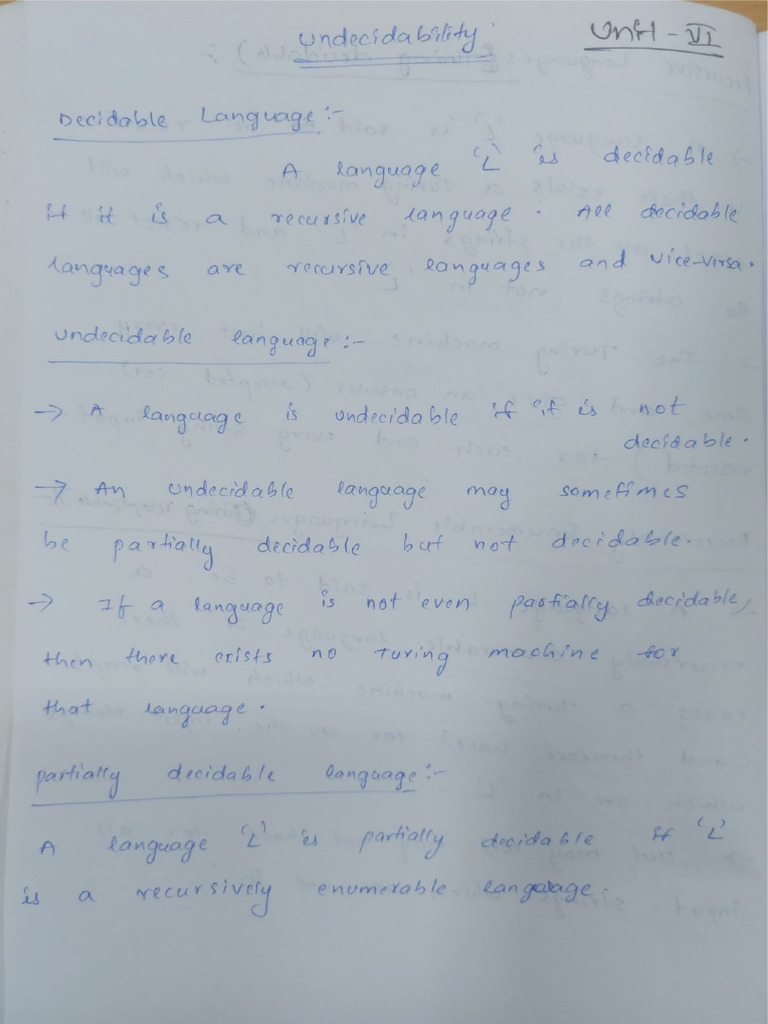 Undecidability Unit - VI
Decidable Language :-
A language 'L' is decidable
if it is a recursive language. All decidable
languages are recursive languages and vice-versa.
undecidable language :-
→ A language is undecidable if it is not
decidable.
→ An undecidable language may sometimes
be partially decidable but not decidable.
→ If a language is not even partially decidable,
then there exists no Turing machine for
that language.
partially decidable language :-
A language 'L' is partially decidable if 'L'
is a recursively enumerable language.